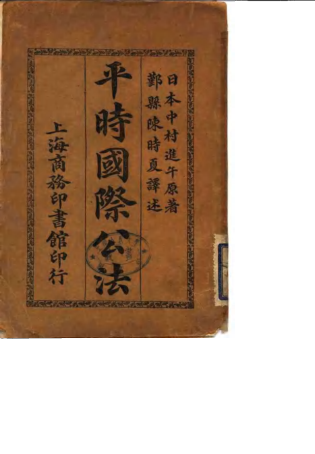 日本中村進午原著
鄞縣陳時夏譯述
平時國際公法
上海商務印書館印行